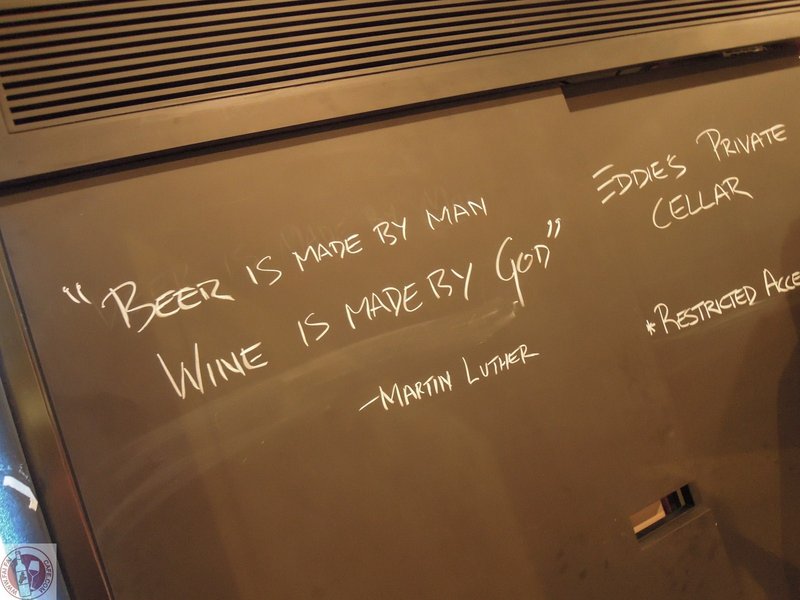 "BEER IS MADE BY MAN
WINE IS MADE BY GOD"
-MARTIN LUTHER
EDDIE'S PRIVATE
CELLAR
*RESTRICTED ACCE